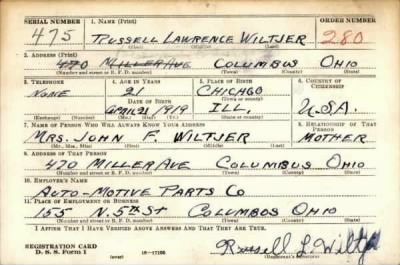 SERIAL NUMBER 1. NAME (Print) ORDER NUMBER
475 RUSSELL LAWRENCE WILTJER 280
(First) (Middle) (Last)
2. ADDRESS (Print)
470 MILLER AVE COLUMBUS OHIO
(Number and street or R. F. D. number) (Town) (County) (State)
3. TELEPHONE 4. AGE IN YEARS 5. PLACE OF BIRTH 6. COUNTRY OF CITIZENSHIP
NONE 21 CHICAGO
DATE OF BIRTH (Town or county)
APRIL 21 1919 ILL. U.S.A.
(Exchange) (Number) (Mo.) (Day) (Yr.) (State or country)
7. NAME OF PERSON WHO WILL ALWAYS KNOW YOUR ADDRESS 8. RELATIONSHIP OF THAT PERSON
MRS. JOHN F. WILTJER MOTHER
(Mr., Mrs., Miss) (First) (Middle) (Last)
9. ADDRESS OF THAT PERSON
470 MILLER AVE COLUMBUS OHIO
(Number and street or R. F. D. number) (Town) (County) (State)
10. EMPLOYER'S NAME
AUTO-MOTIVE PARTS CO
11. PLACE OF EMPLOYMENT OR BUSINESS
155 N. 5TH ST COLUMBOS OHIO
(Number and street or R. F. D. number) (Town) (County) (State)
I AFFIRM THAT I HAVE VERIFIED ABOVE ANSWERS AND THAT THEY ARE TRUE.
REGISTRATION CARD
D. S. S. Form 1 (over) 16-17105 Russell L. Wiltjer
(Registrant's signature)